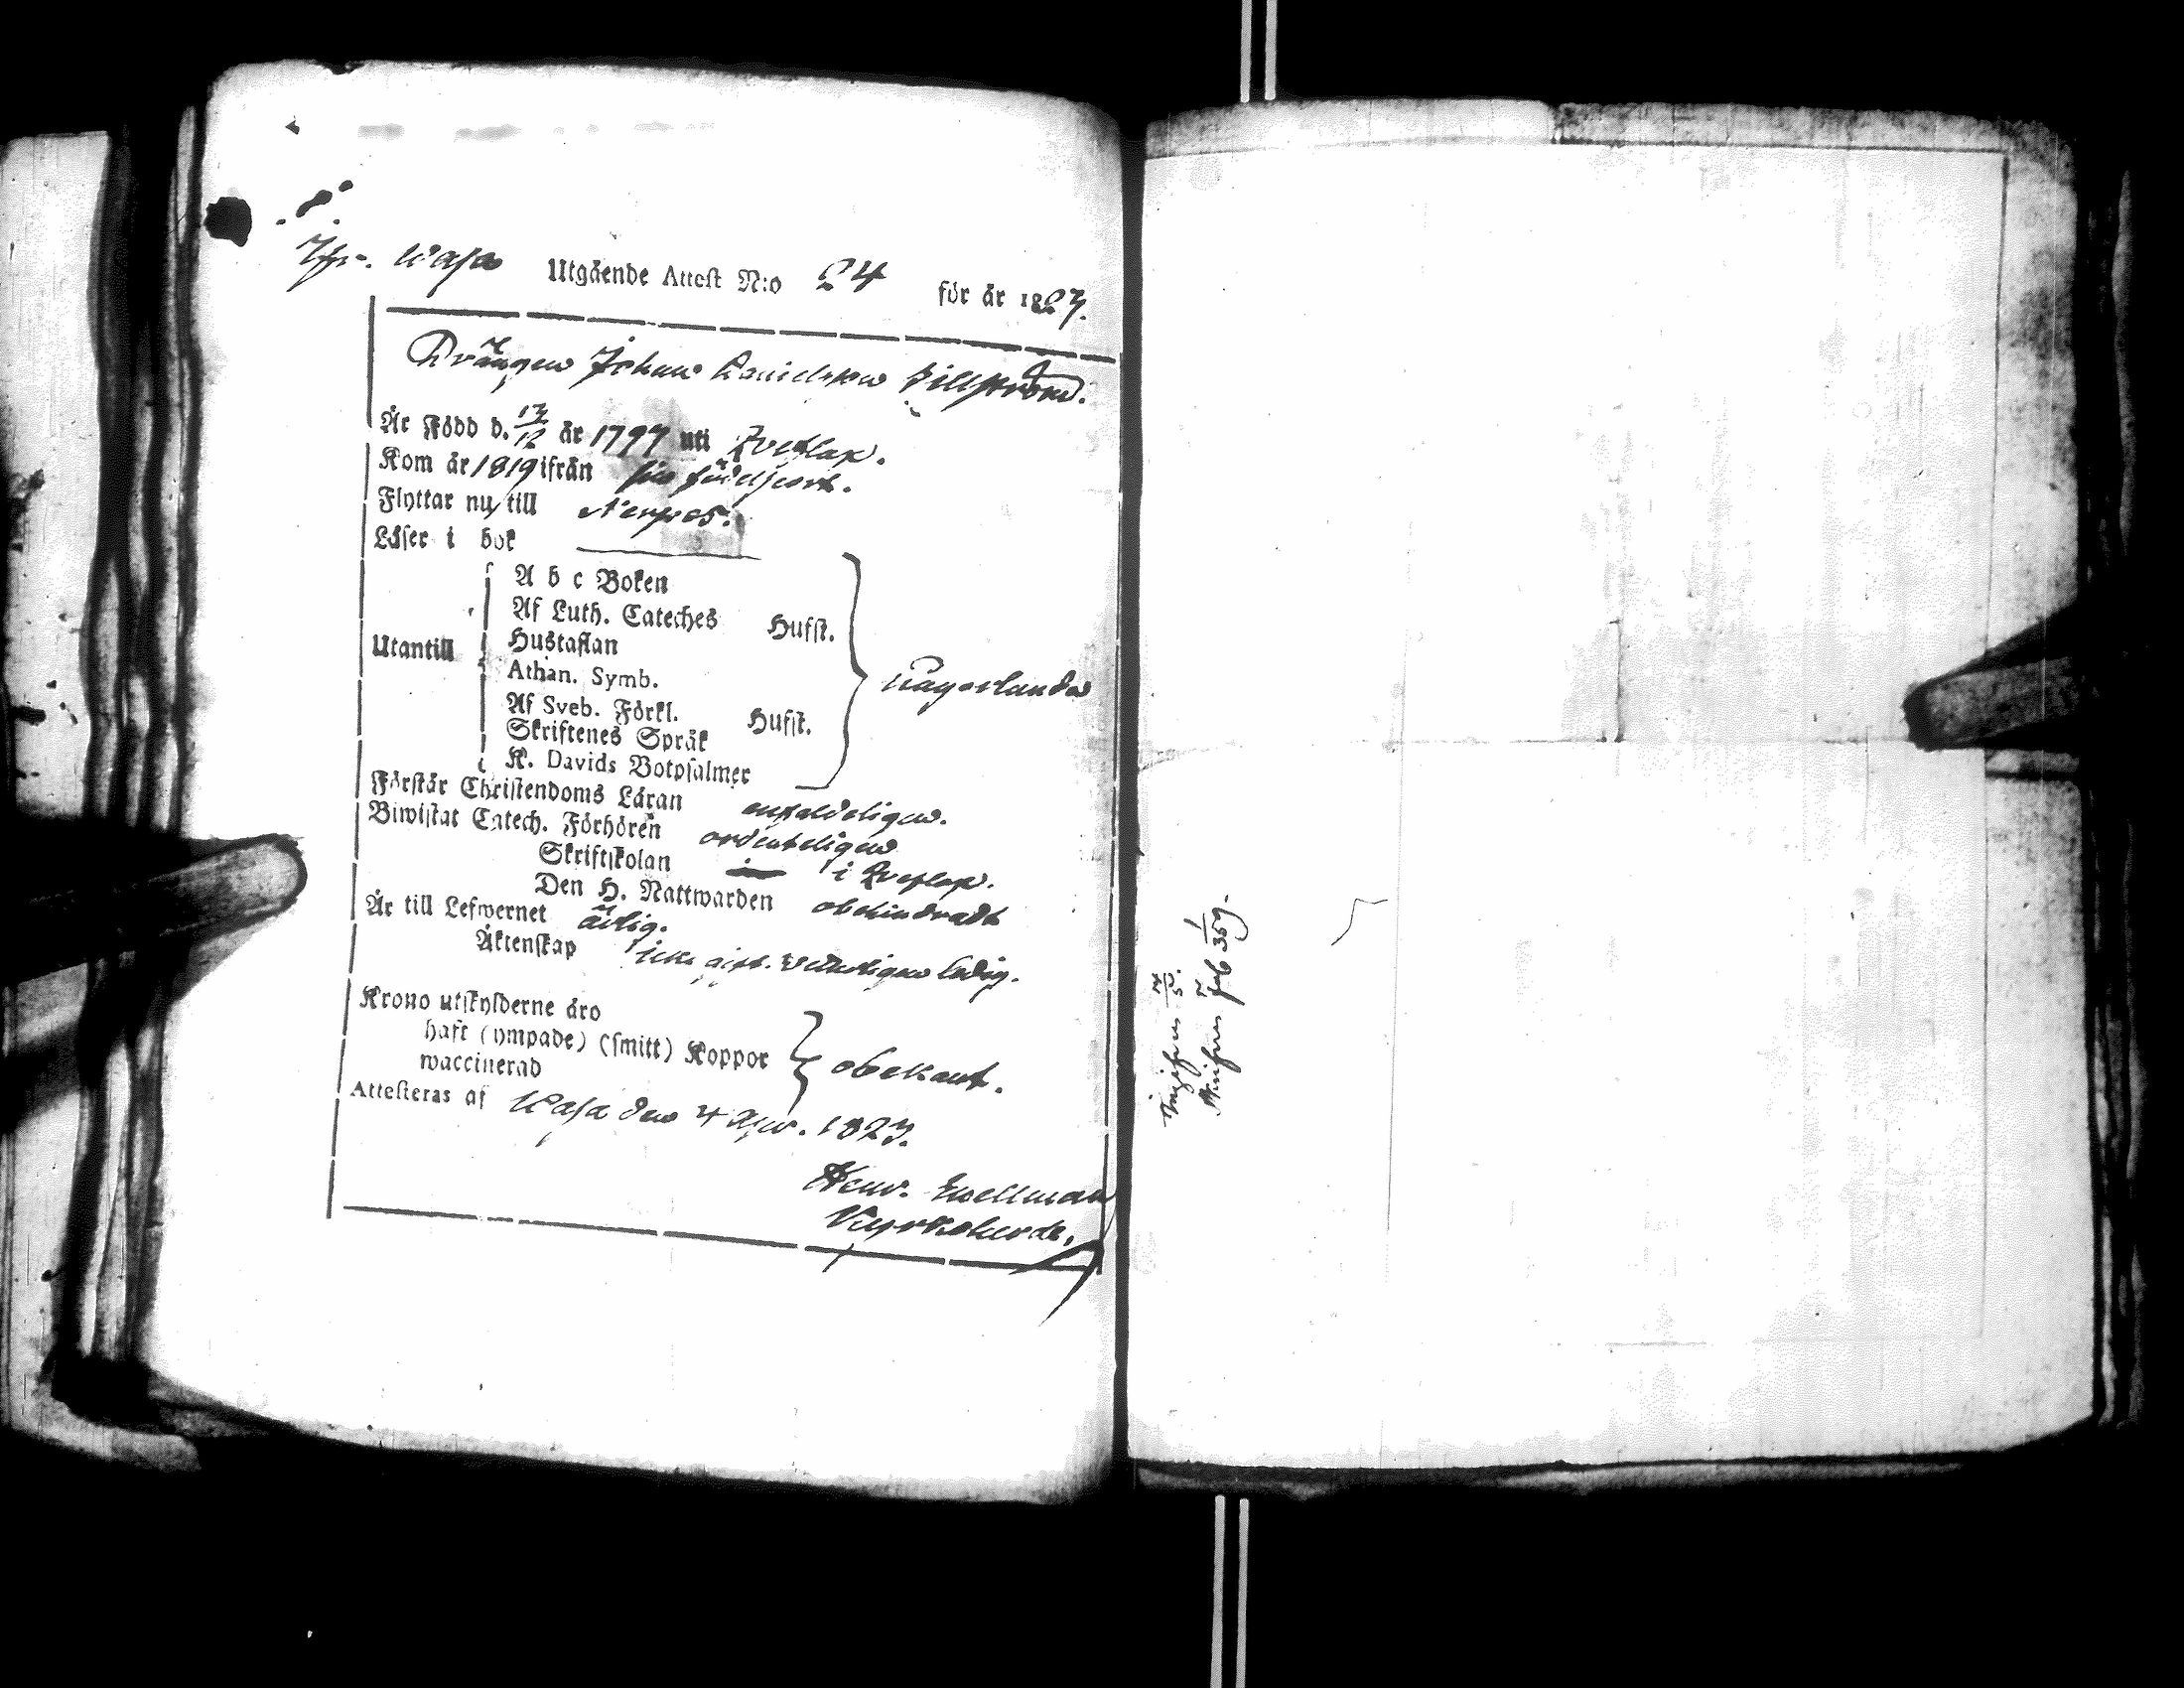 Wasa Utgående Attest N:o 24 för år 1823.
Drängen Johan Danielsson Sillström.
Är Född d. 13/12 år 1797 uti Qveflax.
Kom år 1819 ifrån sin födelseort.
Flyttar nu till Nerpes.
Läser i bok
A b c Boken
Af Luth. Cateches Hufst.
Utantill Hustaflan
Athan. Symb.
Af Sveb. Förkl. Hufst.
Skriftenes Språk
K. Davids Botpsalmer
Förstår Christendoms Läran enfaldeligen.
Biwistat Catech. Förhören ordenteligen
Skriftskolan i Qveflax.
Den H. Nattwarden obehindradt
Är till Lefwernet ärlig.
Äktenskap icke gift. ledig.
Krono utskylderne äro
haft (ympade) (smitt) Koppor obekant.
waccinerad
Attesteras af Wasa den 4 1823.
Henr. Wellman
Kyrkoherde.
359.